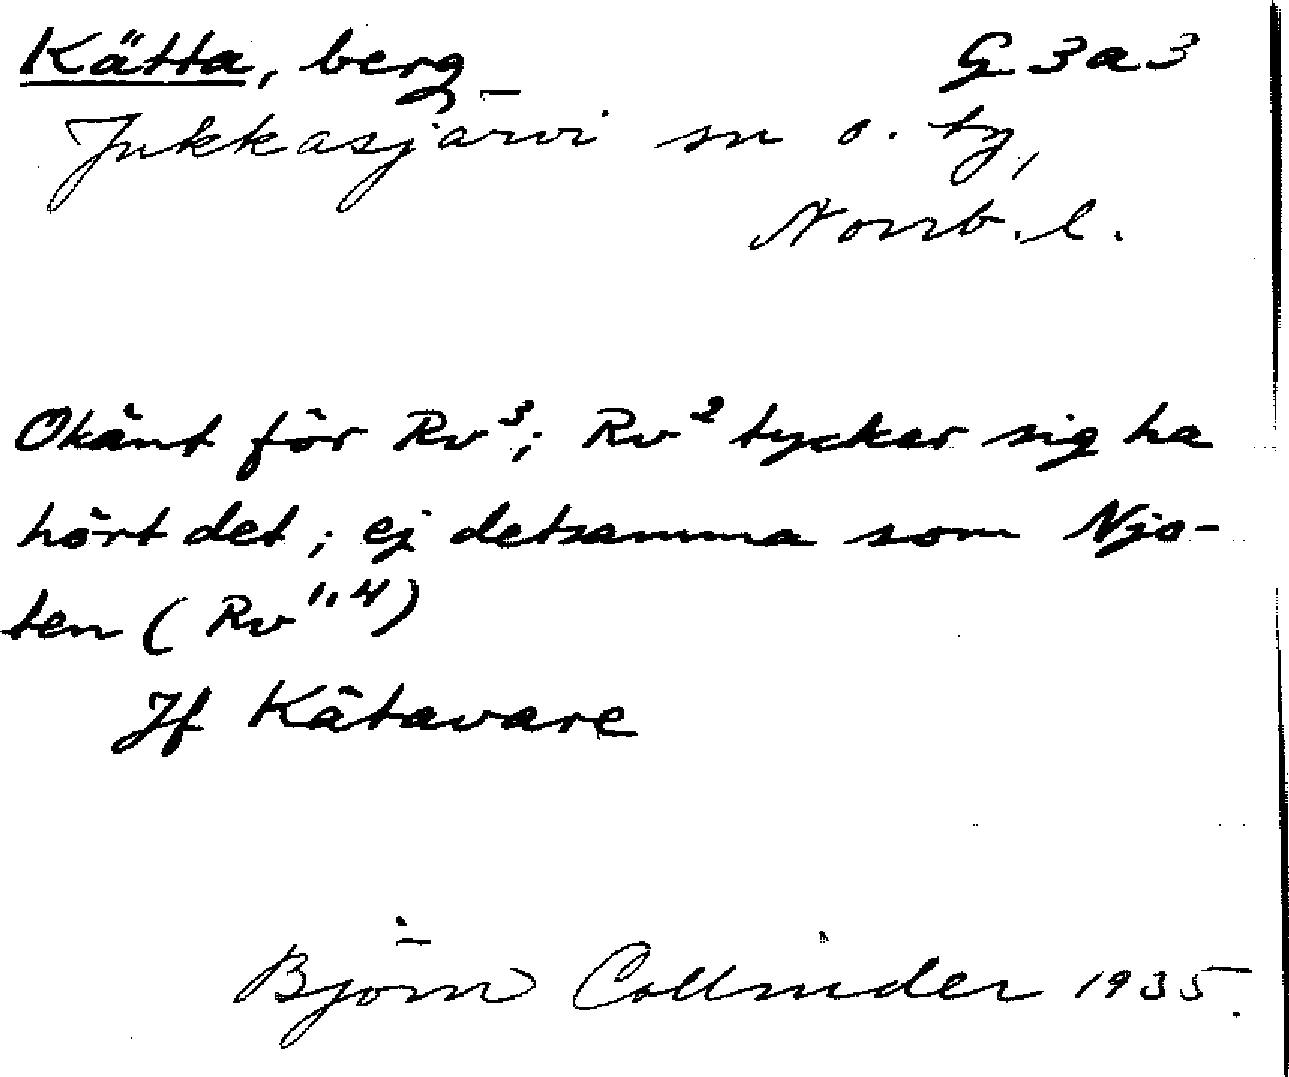 Kätta, berg G 3 a 3
Jukkasjärvi sn o. tg,
Norrb. l.
Okänt för Rv³; Rv² tycker sig ha
hört det; ej detsamma som Njo-
ten (Rv¹,⁴)
Jf Kätavare
Björn Collinder 1935.